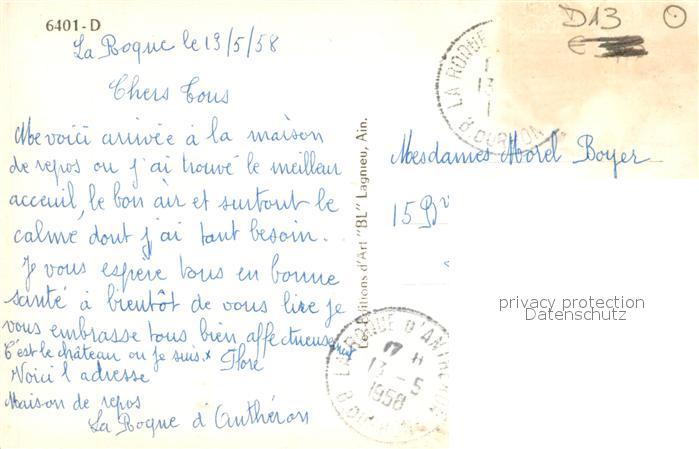 6401-D
La Roque le 13/5/58
Chers Tous
Me voici arrivée à la maison
de repos ou j'ai trouvé le meilleur
acceuil, le bon air et surtout le
calme dont j'ai tant besoin.
Je vous espère tous en bonne
santé à bientôt de vous lire je
vous embrasse tous bien affectueusement
C'est le château ou je suis. x Flore
Voici l'adresse
Maison de repos
La Roque d'Anthéron
Les Editions d'Art "BL" Lagnieu, Ain.
D13
€
LA ROQUE
13
Mesdames Morel Boyer
15 Bd
privacy protection
Datenschutz
LA ROQUE D'ANTHERON
17 H
13 - 5
1958